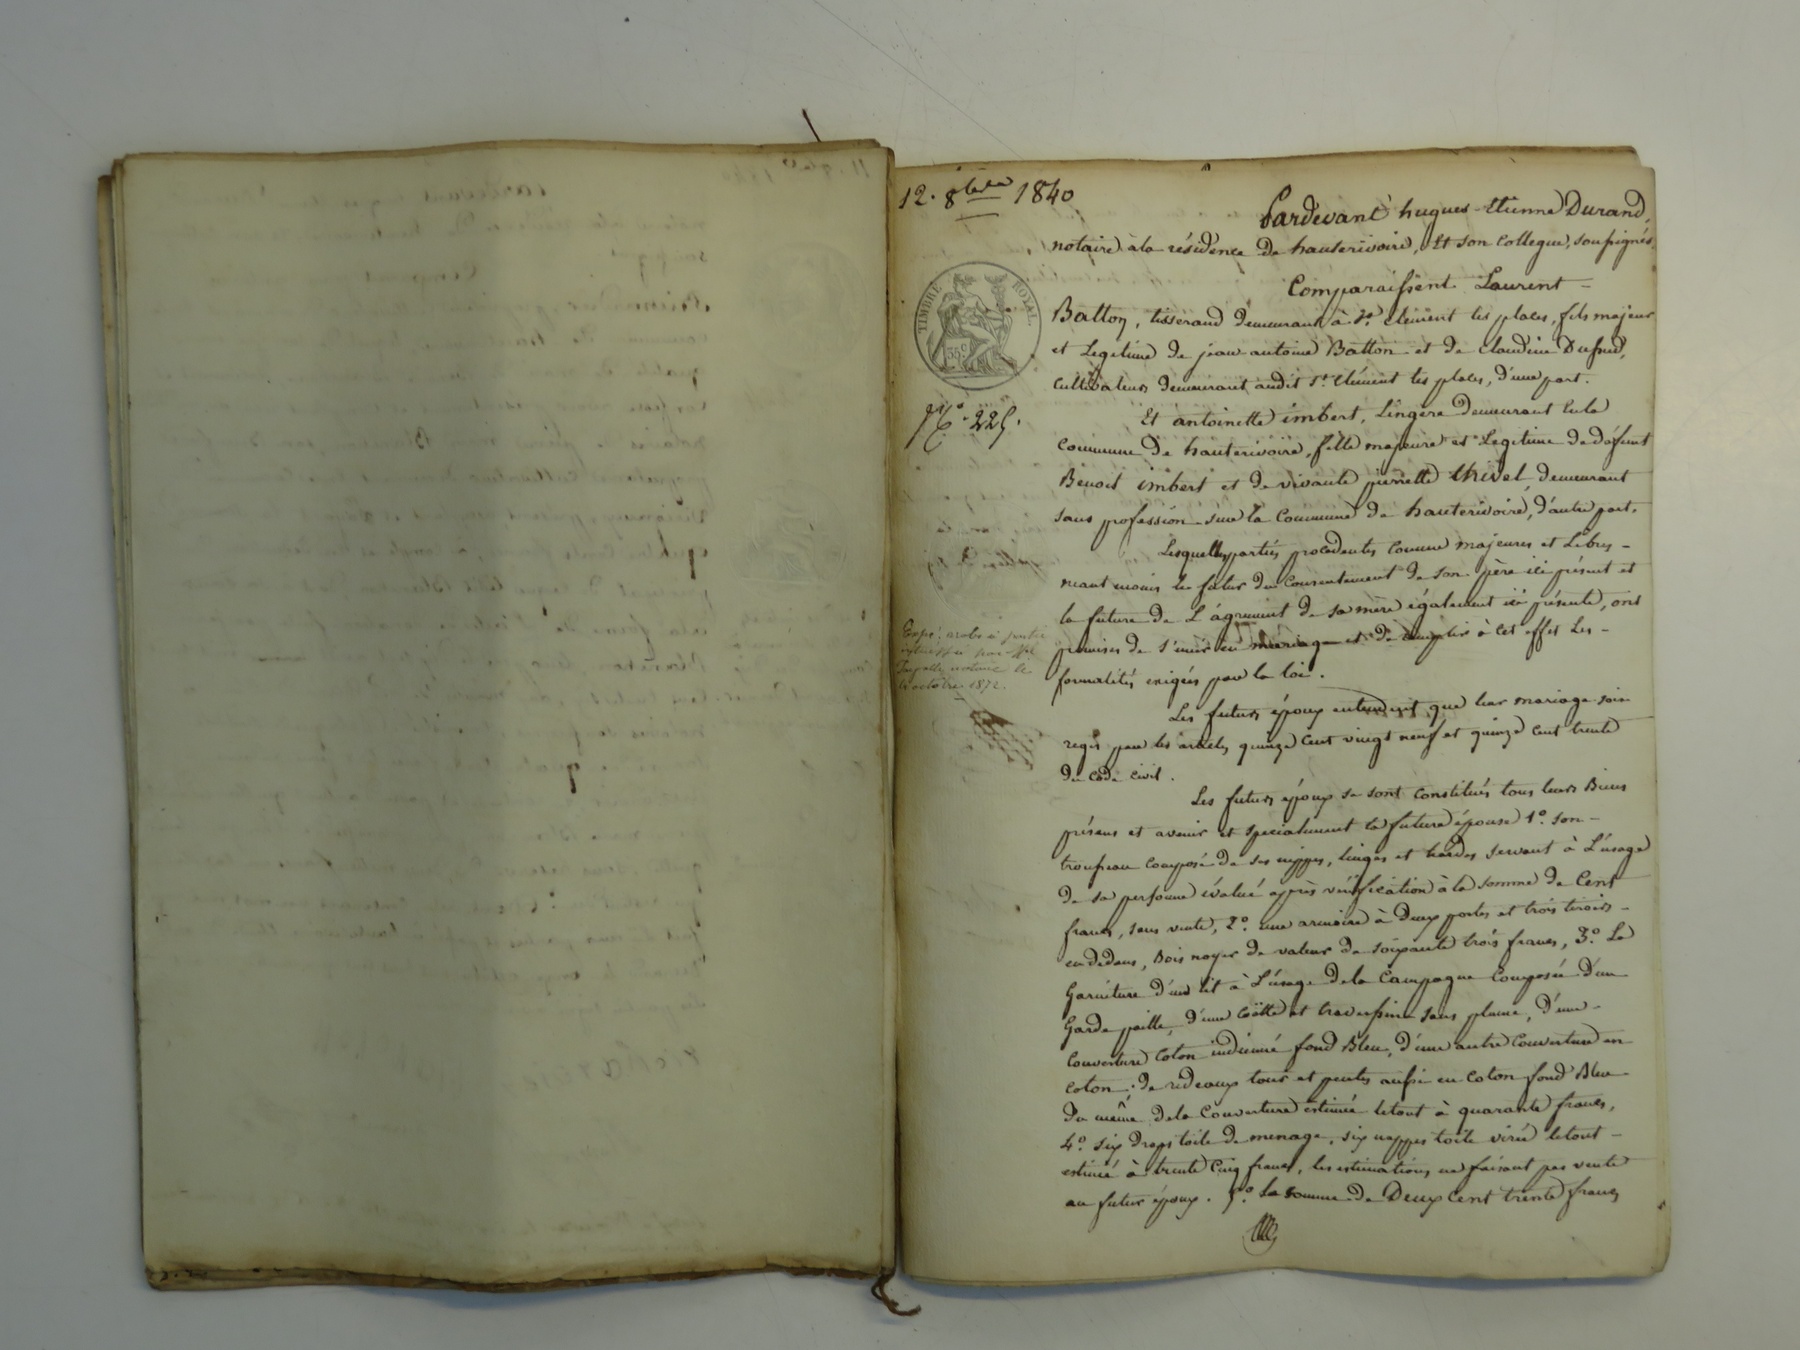 12. 8bre 1840
Pardevant hugues-Etienne Durand,
notaire à la résidence de hauterivoire, Et son Collegue, soussignés
TIMBRE ROYAL
35c
Comparaissent Laurent -
Batton, tisserand demeurant à St. Clément les places, fils majeur
et Legitime de jean antoine Batton et de Claudine Dufued,
Cultivateurs demeurant audit St. Clément les places, d'une part.
N° 225.
Et antoinette imbert, Lingère demeurant en la
Commune de hauterivoire, fille majeure et Legitime de défunt
Benoit imbert et de vivante pierrette thivel, demeurant
sans profession sur la Commune de hauterivoire, d'autre part.
Lesquelles parties procedantes Comme majeures et Libres -
néant moins le futur du Consentement de son père ici présent et
la future de L'agrément de sa mère également ici présente, ont
promises de s'unir en mariage et de remplir à Cet effet Les -
formalités exigées par la loi.
notaire le
octobre 1872.
Les futurs époux entendent que leur mariage soit
regis par les articles quinze Cent vingt neuf et quinze Cent trente
du Code Civil.
Les futurs époux se sont Constitués tous leurs Biens
présens et avenir et specialement la future épouse 1.° son -
trousseau Composé de ses nippes, linges et hardes servant à L'usage
de sa personne évalué après vérification à la somme de Cent
francs, sans vente, 2.° une armoire à Deux portes et trois tiroirs -
en dedans, Bois noyer de valeur de soixante trois francs, 3.° La
Garniture d'un lit à L'usage de la Campagne Composée d'un
Garde paille, d'une Coëtte et traversin sans plume, d'une -
Couverture Coton indienné fond Bleu, d'une autre Couverture en
Coton; de rideaux tour et pentes aussi en Coton fond Bleu
du même de la Couverture estimée letout à quarante francs,
4.° six draps toile de menage, six nappes toile virée letout -
estimé à trente Cinq francs, les estimations ne faisant pas vente
au futur époux. 5.° La somme de Deux Cent trente francs